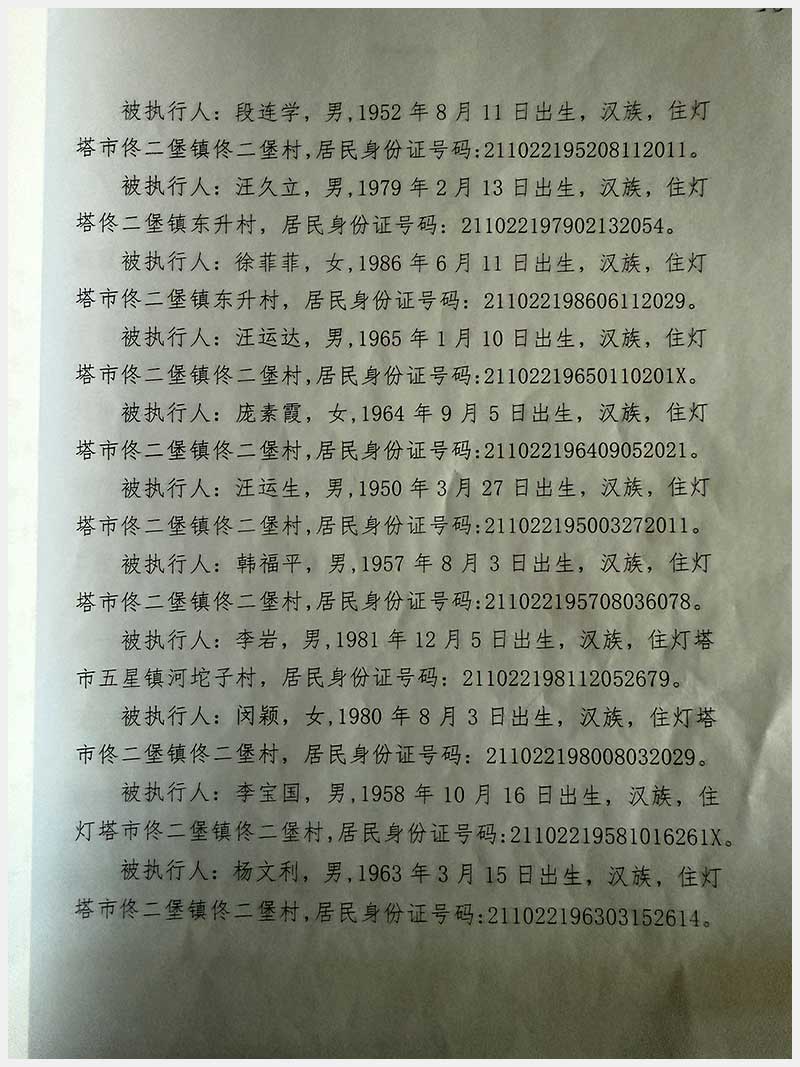 被执行人：段连学，男,1952 年 8 月 11 日出生，汉族，住灯
塔市佟二堡镇佟二堡村,居民身份证号码:211022195208112011。
被执行人：汪久立，男,1979 年 2 月 13 日出生，汉族，住灯
塔佟二堡镇东升村，居民身份证号码：211022197902132054。
被执行人：徐菲菲，女,1986 年 6 月 11 日出生，汉族，住灯
塔市佟二堡镇东升村，居民身份证号码：211022198606112029。
被执行人：汪运达，男,1965 年 1 月 10 日出生，汉族，住灯
塔市佟二堡镇佟二堡村,居民身份证号码:21102219650110201X。
被执行人：庞素霞，女,1964 年 9 月 5 日出生，汉族，住灯
塔市佟二堡镇佟二堡村,居民身份证号码:211022196409052021。
被执行人：汪运生，男,1950 年 3 月 27 日出生，汉族，住灯
塔市佟二堡镇佟二堡村,居民身份证号码:211022195003272011。
被执行人：韩福平，男,1957 年 8 月 3 日出生，汉族，住灯
塔市佟二堡镇佟二堡村,居民身份证号码:211022195708036078。
被执行人：李岩，男,1981 年 12 月 5 日出生，汉族，住灯塔
市五星镇河坨子村，居民身份证号码：211022198112052679。
被执行人：闵颖，女,1980 年 8 月 3 日出生，汉族，住灯塔
市佟二堡镇佟二堡村，居民身份证号码：211022198008032029。
被执行人：李宝国，男,1958 年 10 月 16 日出生，汉族，住
灯塔市佟二堡镇佟二堡村,居民身份证号码:21102219581016261X。
被执行人：杨文利，男,1963 年 3 月 15 日出生，汉族，住灯
塔市佟二堡镇佟二堡村,居民身份证号码:211022196303152614。